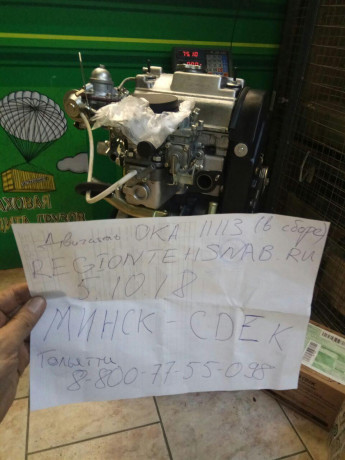 75.10
Двигатель ОКА 11113 (в сборе)
REGIONTEHSNAB.RU
5 10 18
МИНСК - CDEK
Тольятти
8-800-77-55-098